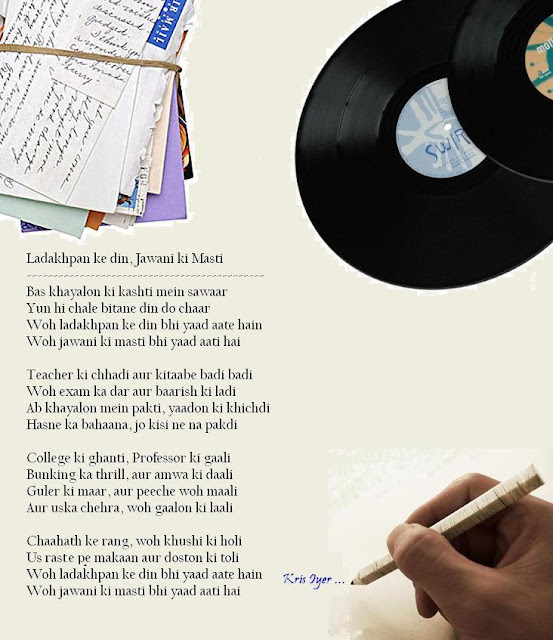 AIR MAIL
SWIR
Ladakhpan ke din, Jawani ki Masti
Bas khayalon ki kashti mein sawaar
Yun hi chale bitane din do chaar
Woh ladakhpan ke din bhi yaad aate hain
Woh jawani ki masti bhi yaad aati hai
Teacher ki chhadi aur kitaabe badi badi
Woh exam ka dar aur baarish ki ladi
Ab khayalon mein pakti, yaadon ki khichdi
Hasne ka bahaana, jo kisi ne na pakdi
College ki ghanti, Professor ki gaali
Bunking ka thrill, aur amwa ki daali
Guler ki maar, aur peeche woh maali
Aur uska chehra, woh gaalon ki laali
Chaahath ke rang, woh khushi ki holi
Us raste pe makaan aur doston ki toli
Woh ladakhpan ke din bhi yaad aate hain
Woh jawani ki masti bhi yaad aati hai
Kris Iyer ...